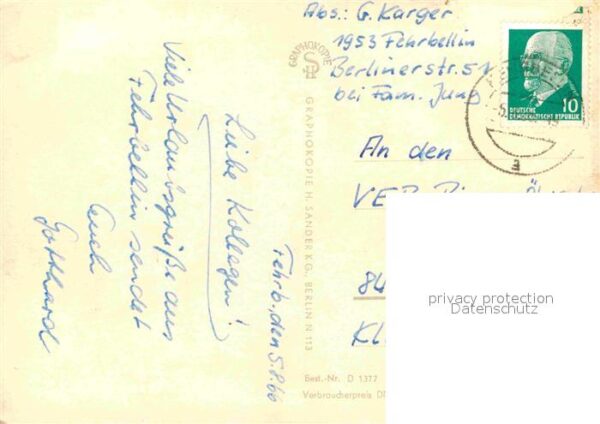 Abs.: G. Karger
1953 Fehrbellin
Berlinerstr. 51
bei Fam. Jung
DEUTSCHE
DEMOKRATISCHE REPUBLIK
10
An den
VEB
84
Kl
privacy protection
Datenschutz
Fehrb., den 5.8.66
Liebe Kollegen!
Viele Urlaubsgrüße aus
Fehrbellin sendet
Euch
Gotthard
GRAPHOKOPIE
GRAPHOKOPIE H. SANDER KG., BERLIN N 113
Best.-Nr. D 1377
Verbraucherpreis